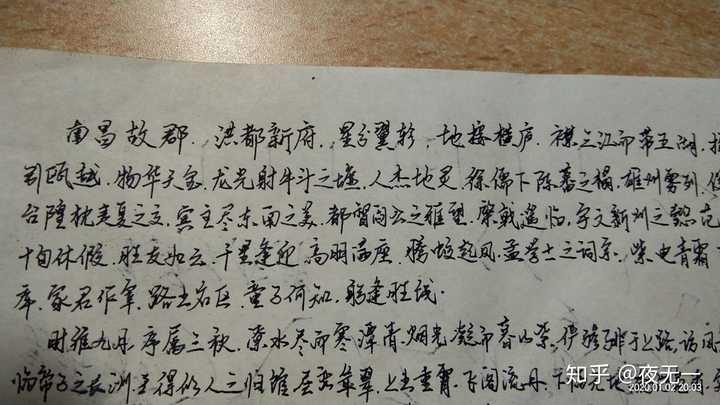 南昌故郡.洪都新府.星分翼轸,地接衡庐.襟三江而带五湖.
瓯越.物华天宝.龙光射牛斗之墟.人杰地灵.徐孺下陈蕃之榻.雄州雾列.
台隍枕夷夏之交,宾主尽东南之美.都督阎公之雅望.棨戟遥临.宇文新州之懿范
十旬休假.胜友如云.千里逢迎.高朋满座.腾蛟起凤.孟学士之词宗.紫电青霜
库.家君作宰.路出名区.童子何知.躬逢胜饯.
时维九月.序属三秋.潦水尽而寒潭清.烟光凝而暮山紫.俨骖騑于上路.访风
临帝子之长洲.得仙人之旧馆.层峦耸翠.上出重霄.飞阁流丹.下临地
知乎 @夜无一
2020.01.02 20:03